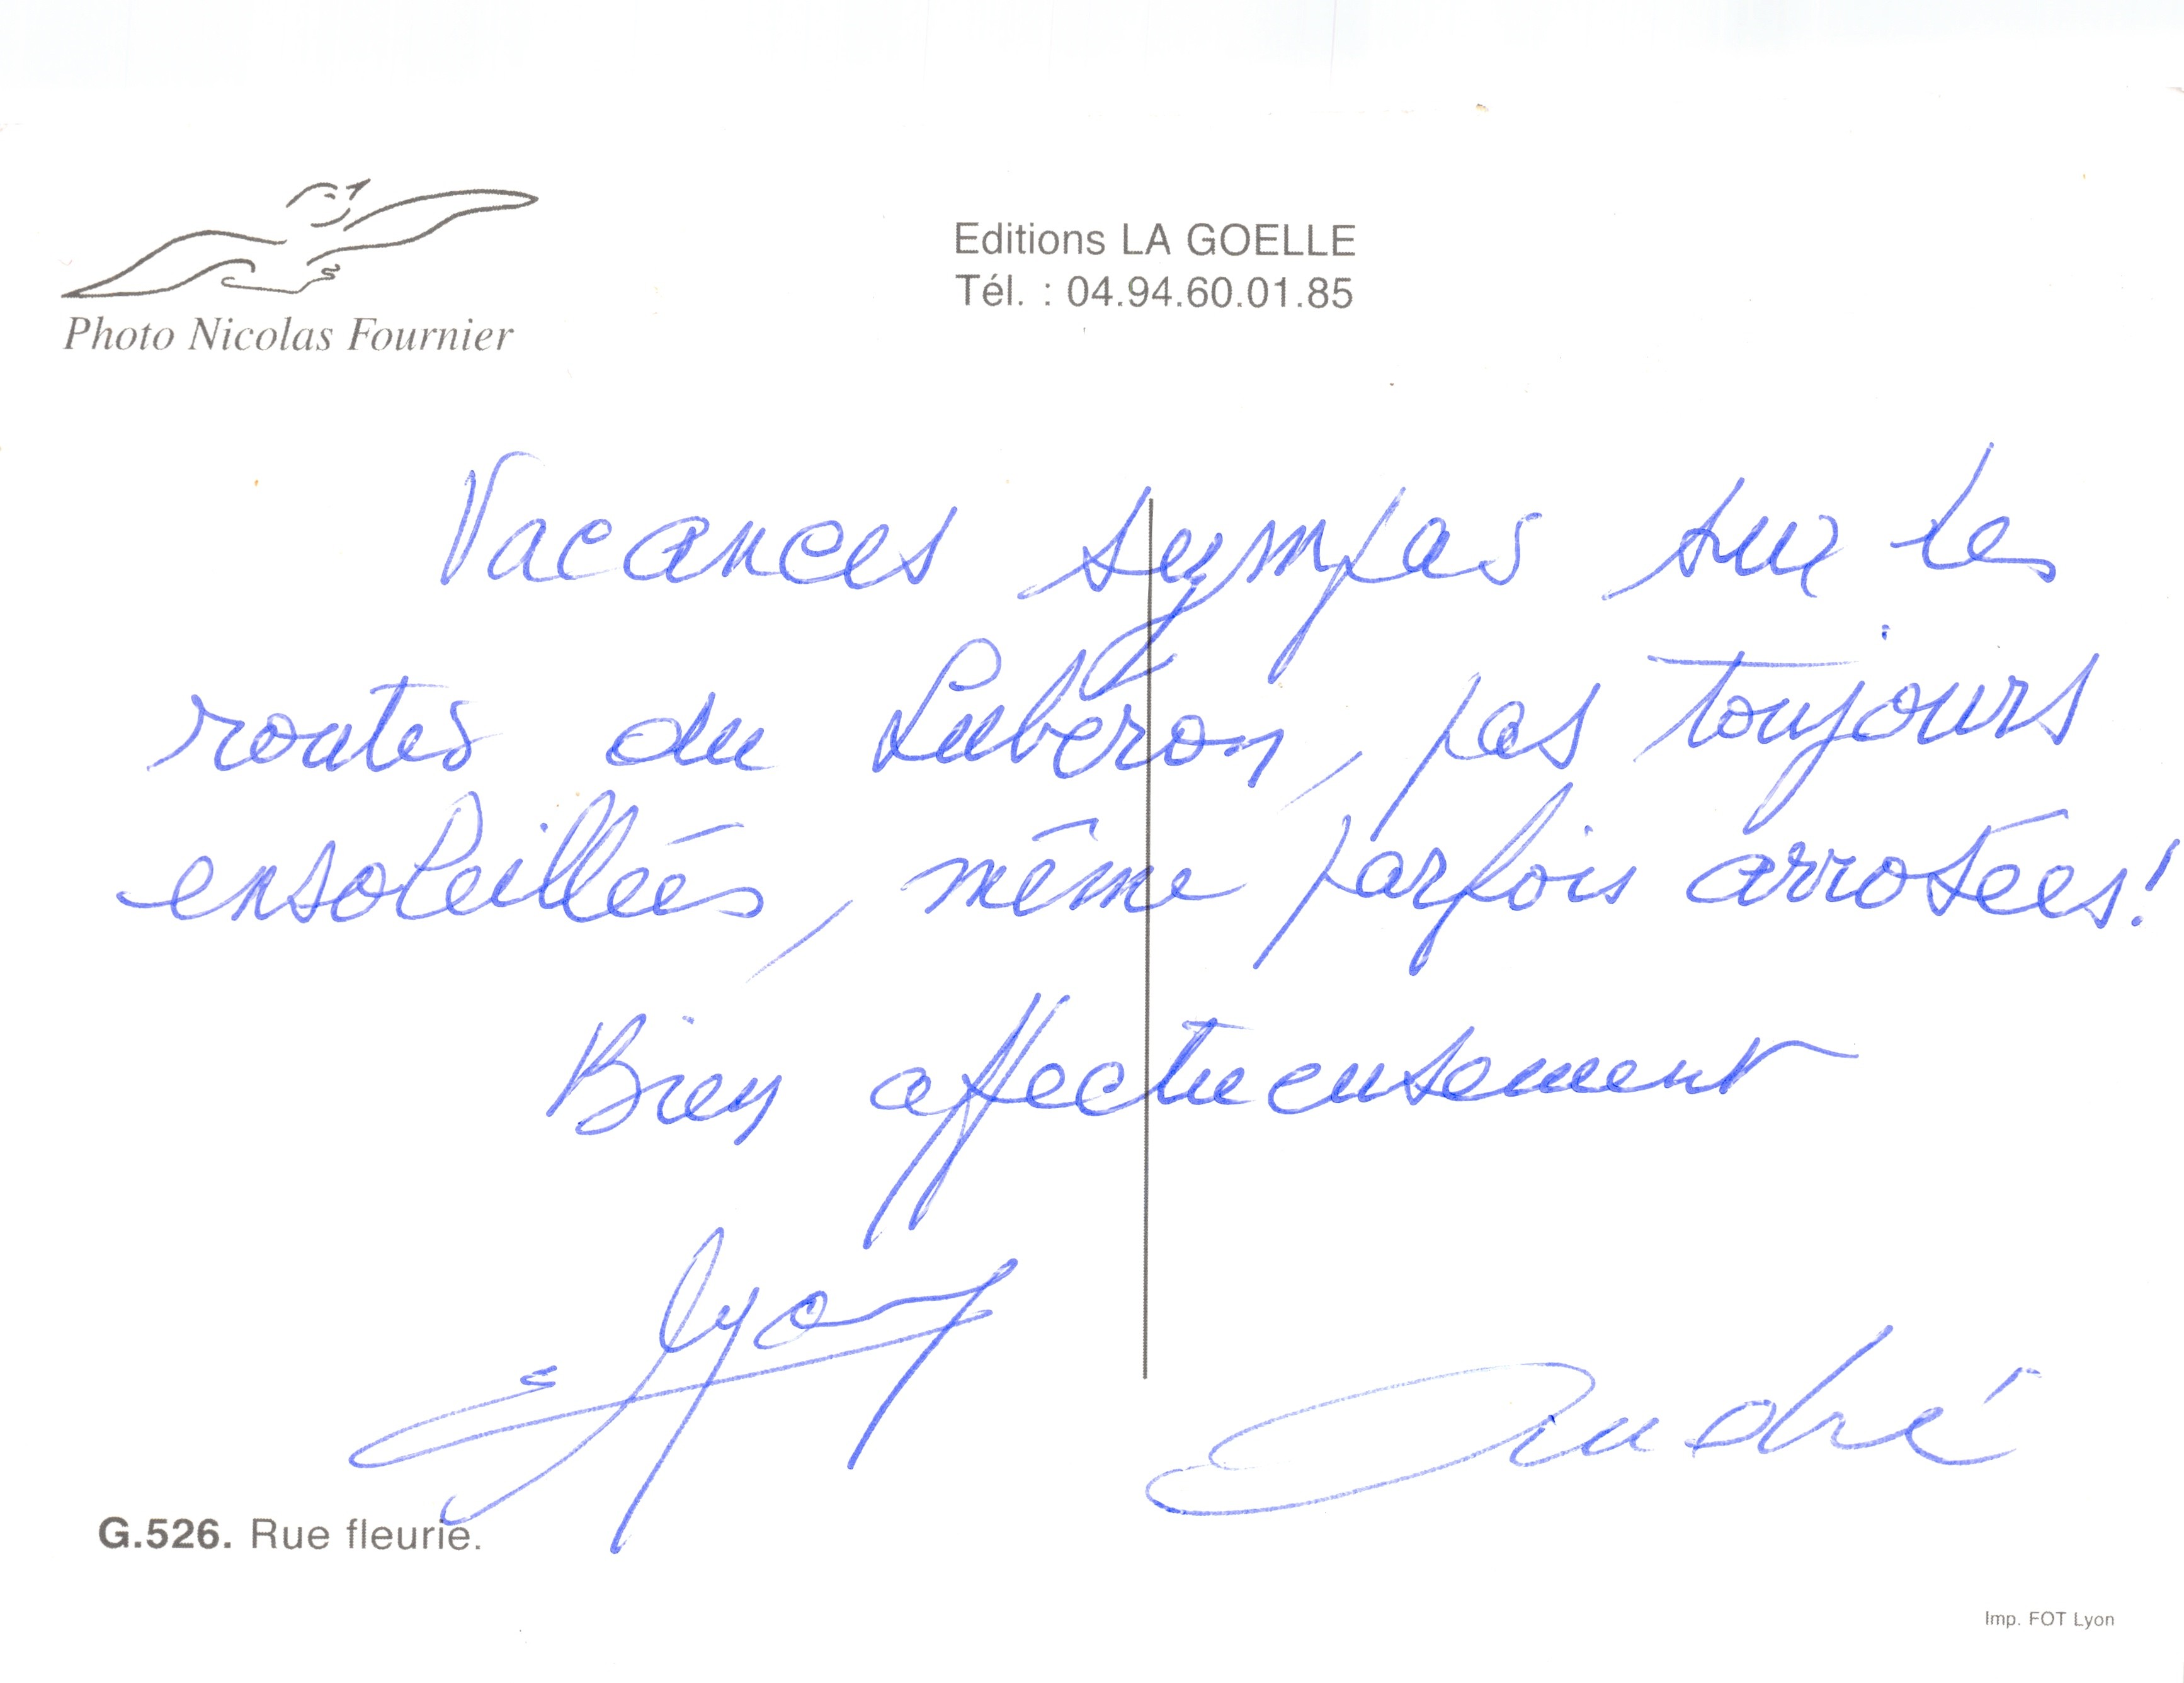 Photo Nicolas Fournier
Editions LA GOELLE
Tél. : 04.94.60.01.85
Vacances sympas sur les
routes du Luberon, pas toujours
ensoleillées, même parfois arrosées!
Bien affectueusement
André
G.526. Rue fleurie.
Imp. FOT Lyon